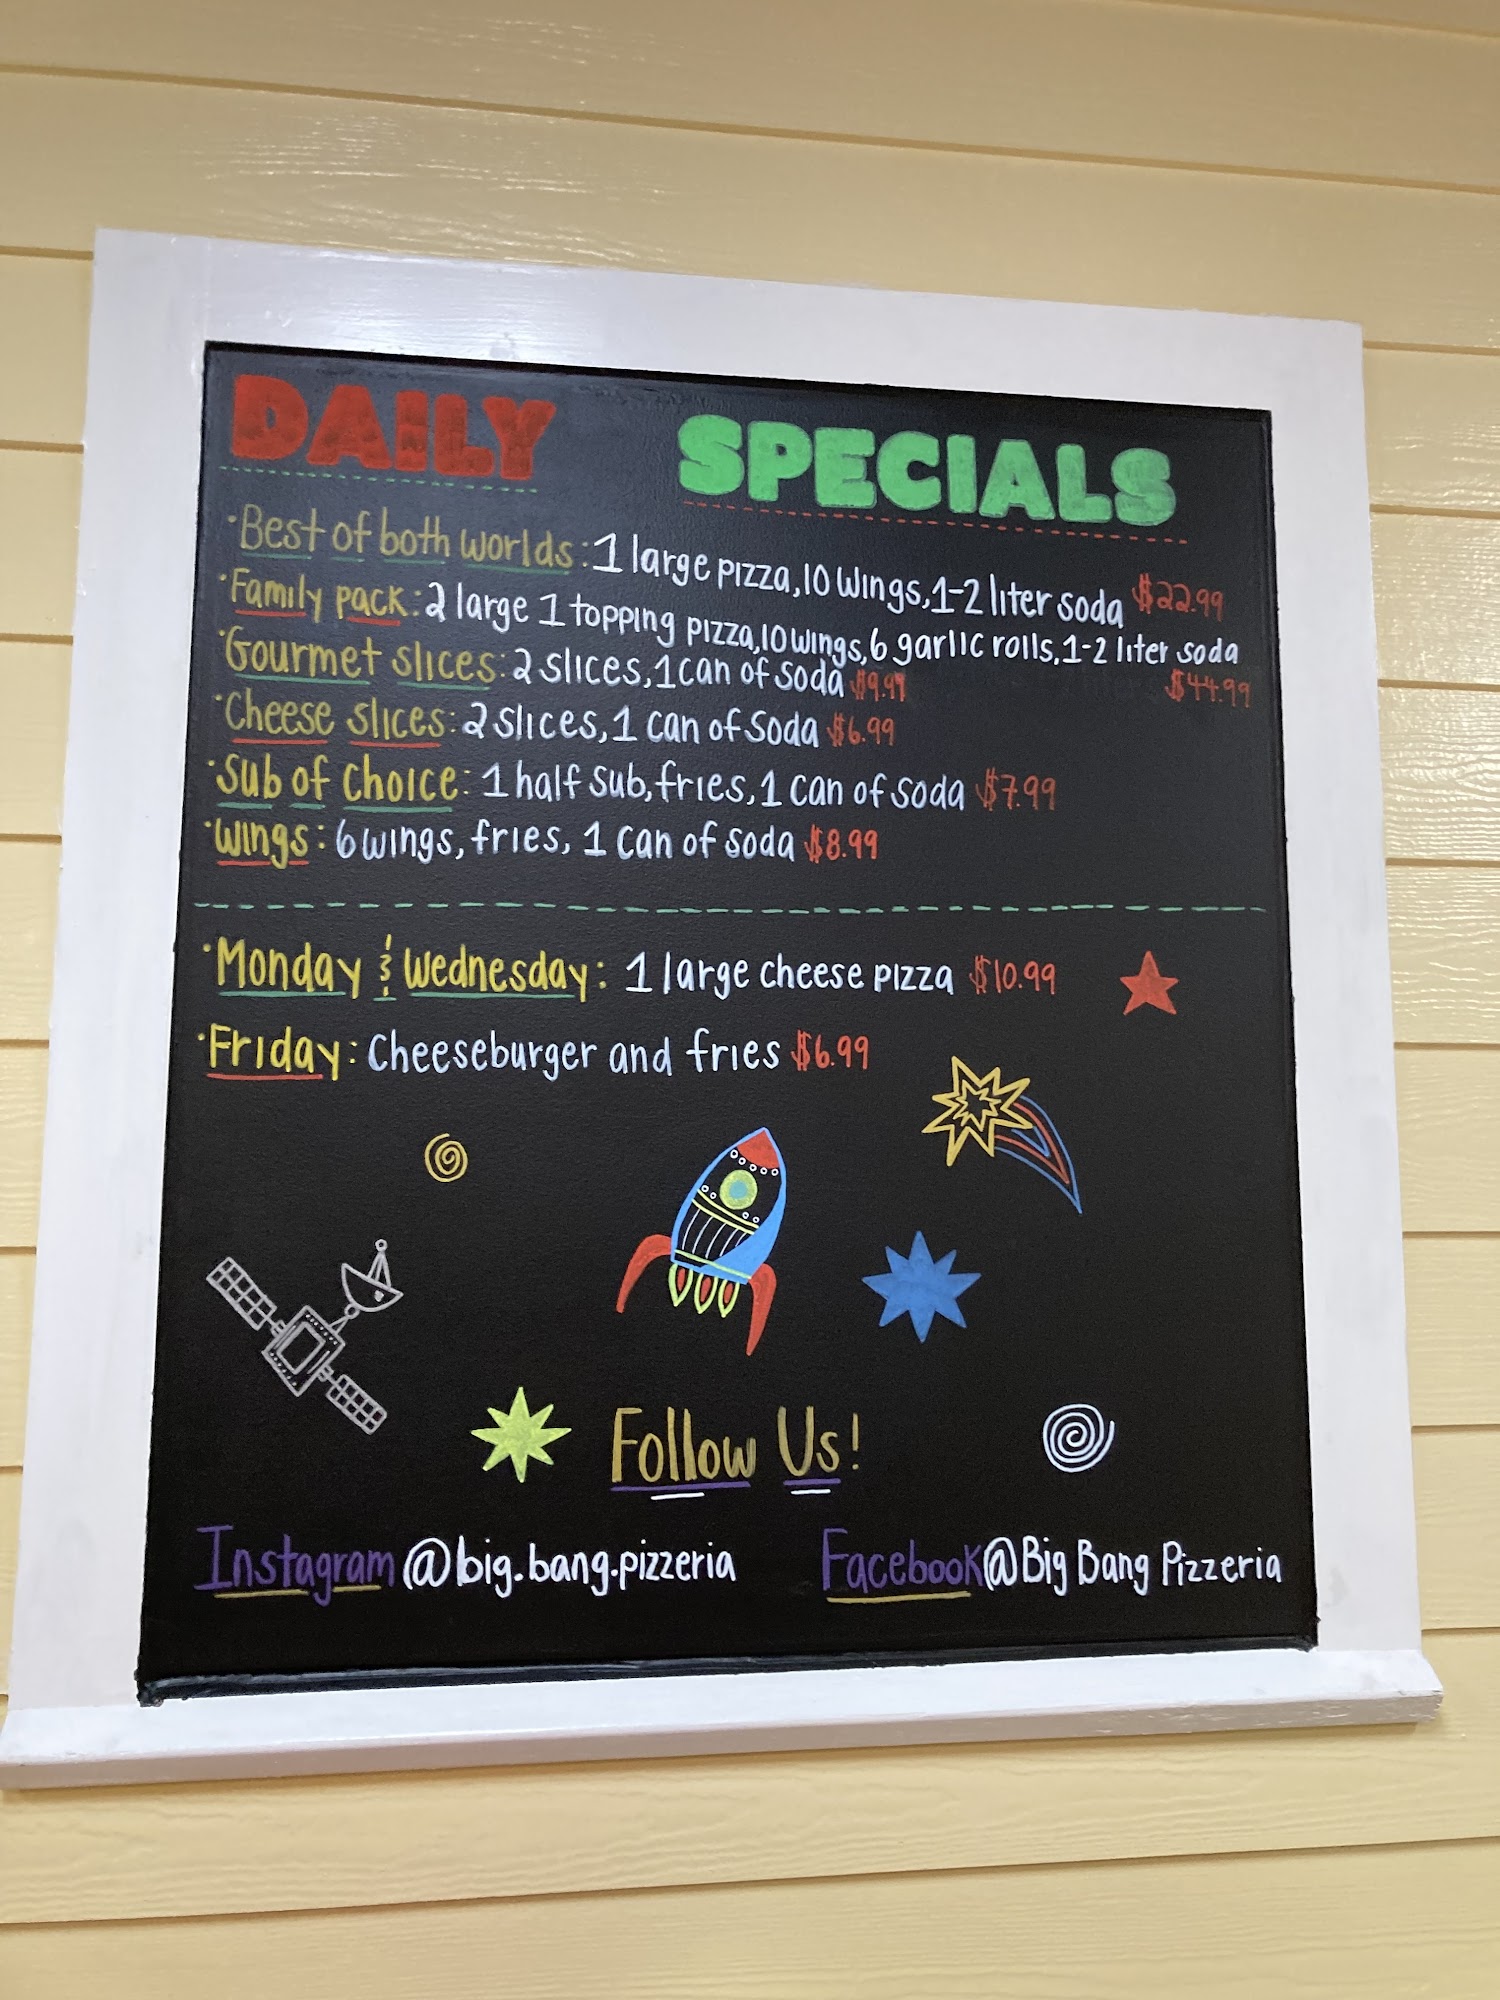 DAILY SPECIALS
·Best of both worlds: 1 large pizza, 10 wings, 1-2 liter soda $22.99
·Family pack: 2 large 1 topping pizza, 10 wings, 6 garlic rolls, 1-2 liter soda
$44.99
·Gourmet slices: 2 slices, 1 can of soda $9.99
·Cheese slices: 2 slices, 1 can of soda $6.99
·Sub of choice: 1 half sub, fries, 1 can of soda $7.99
·Wings: 6 wings, fries, 1 can of soda $8.99
·Monday & Wednesday: 1 large cheese pizza $10.99
·Friday: Cheeseburger and fries $6.99
Follow Us!
Instagram @big.bang.pizzeria Facebook @Big Bang Pizzeria